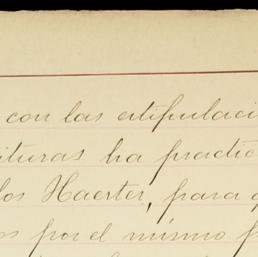 con las estipulaci
ituras ha practic
los Haerter, para
os por el mismo p